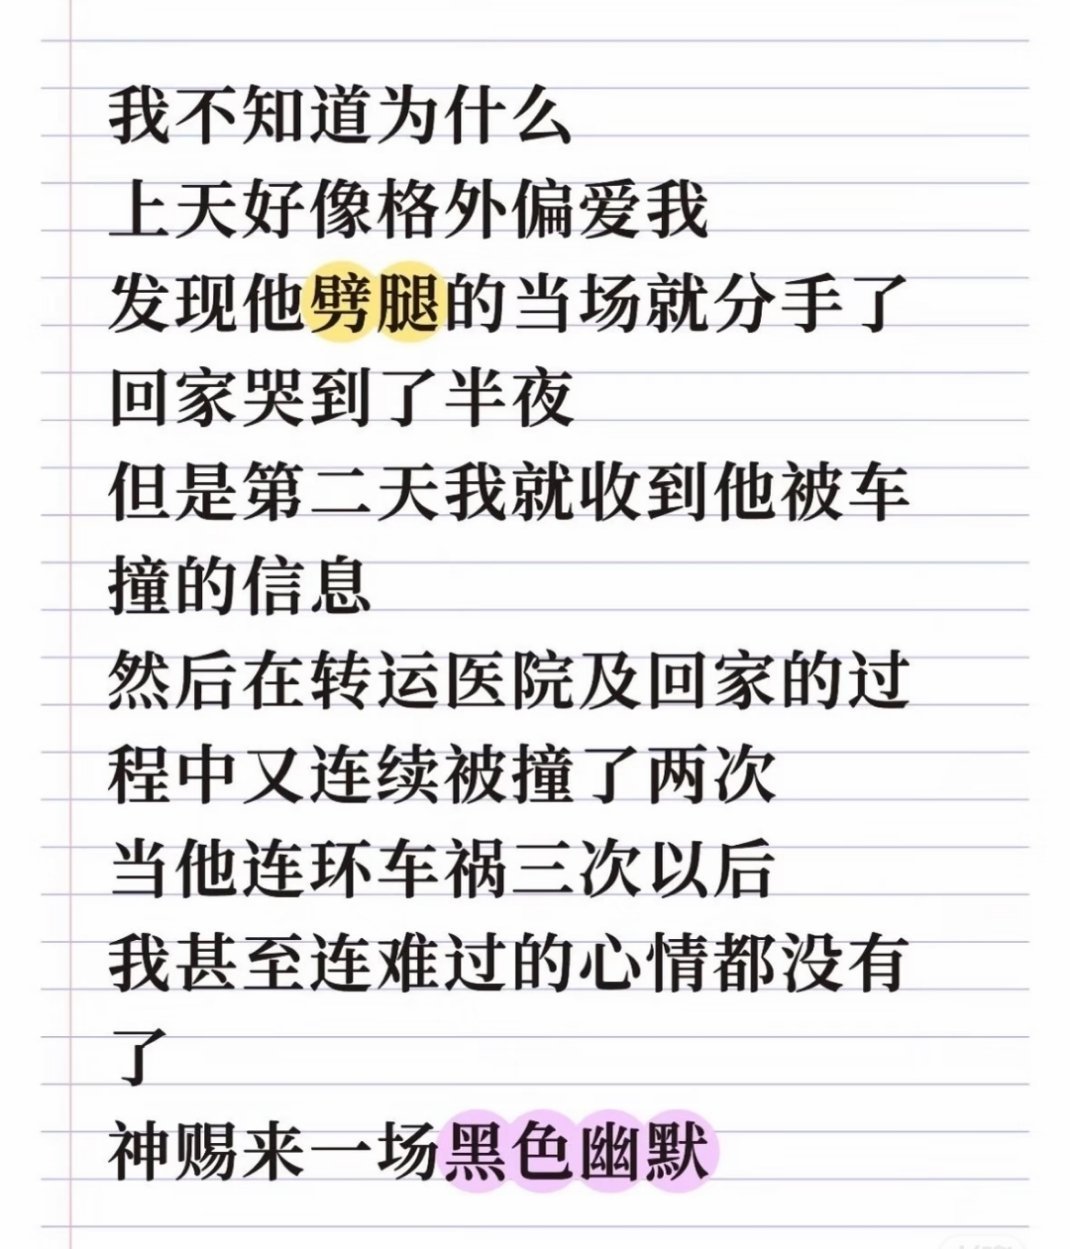 我不知道为什么
上天好像格外偏爱我
发现他劈腿的当场就分手了
回家哭到了半夜
但是第二天我就收到他被车
撞的信息
然后在转运医院及回家的过
程中又连续被撞了两次
当他连环车祸三次以后
我甚至连难过的心情都没有
了
神赐来一场黑色幽默